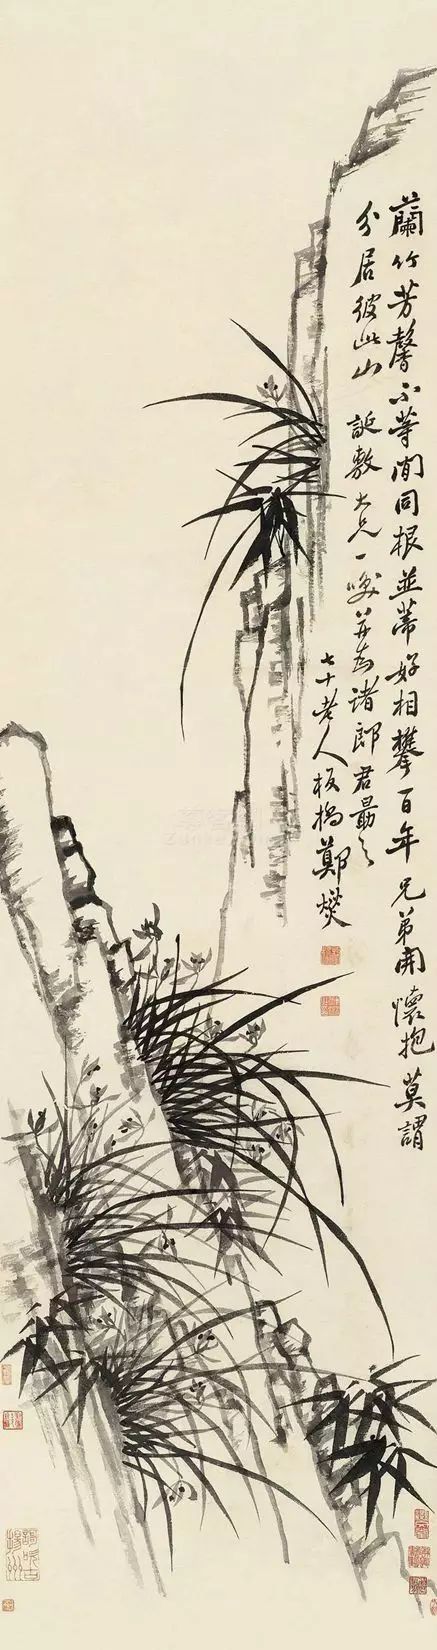 蘭竹芳馨不等閒同根並蒂好相攀百年兄弟開懷抱莫謂
分居彼此山 誕敷大兄一咲并為諸郎君勗之
七十老人板橋鄭燮